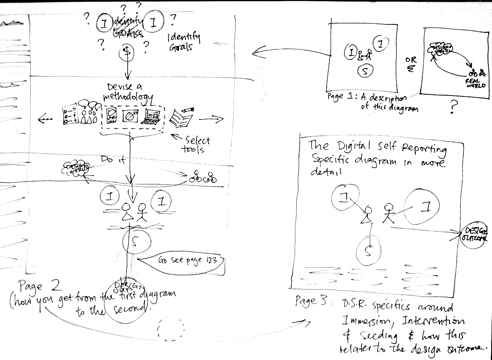 ? ? ? ? ?
I Identify GOALS I
? S ?
Identify
Goals
Devise a
methodology
Select
tools
Do it
I I
S
Go see page 123
Page 2
(how you get from the first diagram
to the second
I I
S
Page 1: A description
of this diagram
OR
REAL
WORLD
?
The Digital Self Reporting
Specific diagram in more
detail
I I
S
DESIGN
OUTCOME
Page 3. D.S.R. specifics around
Immersion, Intervention
& Seeding & how this
relates to the design outcome.